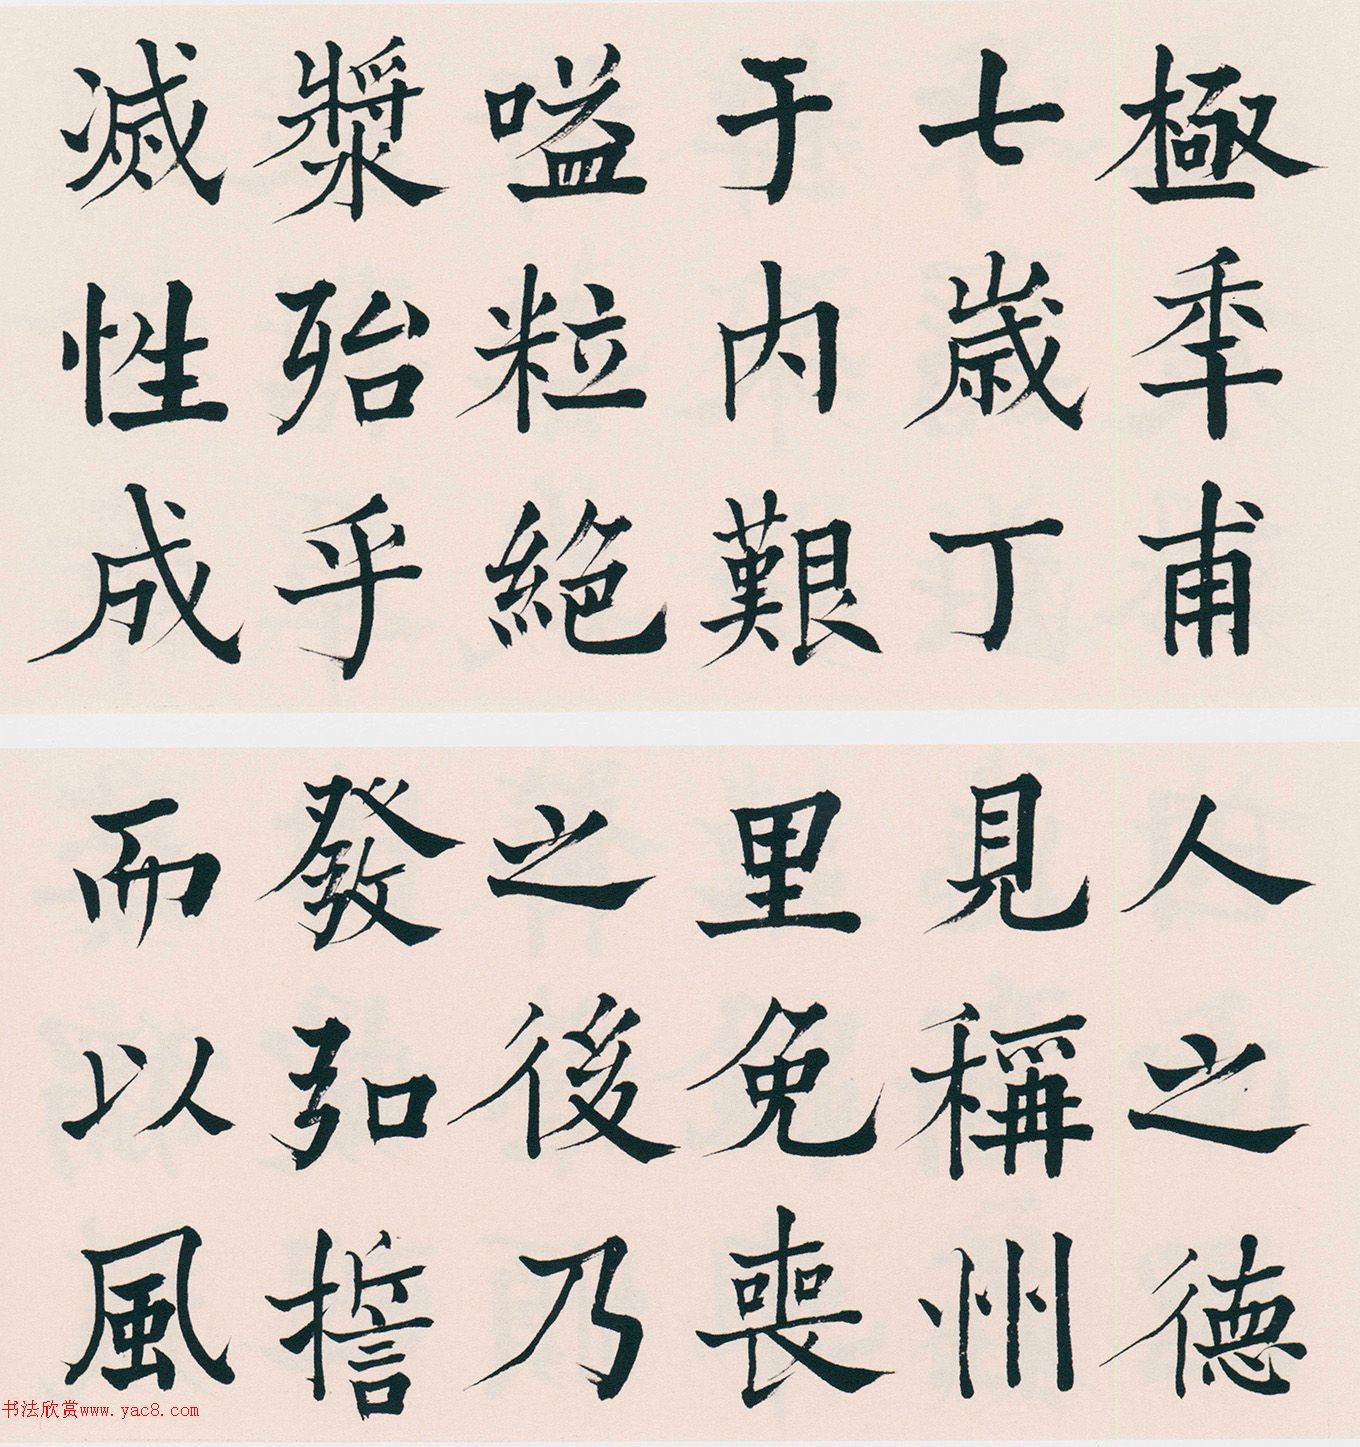 極秊甫
七歲丁
于内艱
嗌粒絶
漿殆乎
滅性成
人之德
見稱州
里免喪
之後乃
發弘誓
而以風
书法欣赏www.yac8.com